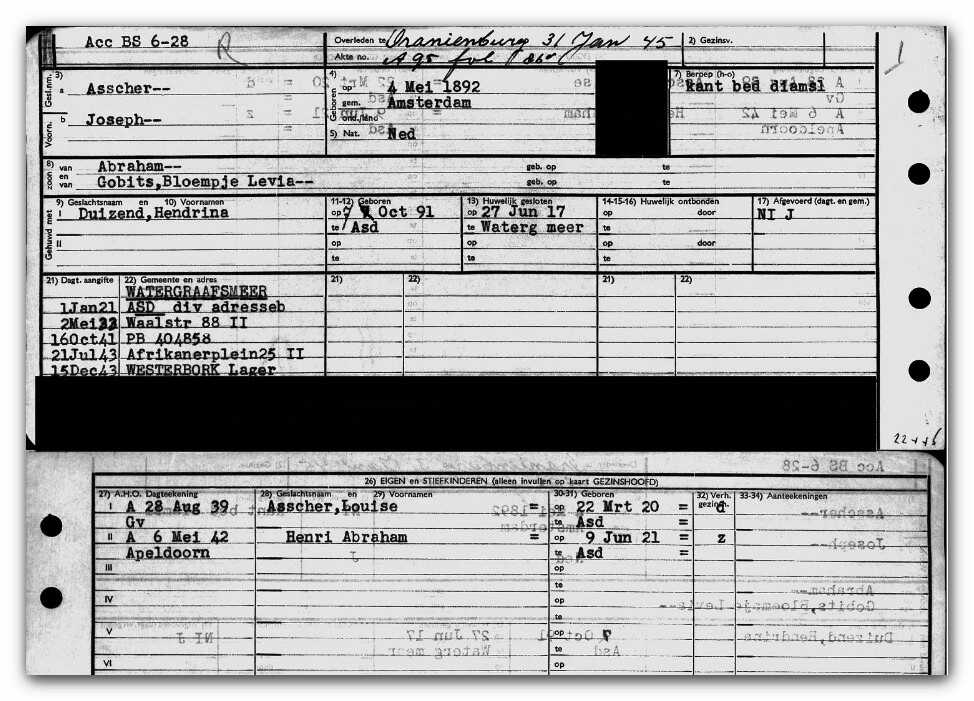 Acc BS 6-28 R
Overleden te Oranienburg 31 Jan 45
Akte no. A 95 fol
2) Gezinsv.
1
Gesl.nm. 3) a Asscher--
Voorn. b Joseph--
4) Geboren op 4 Mei 1892
gem. Amsterdam
5) Nat. Ned
7) Beroep (h-o)
kant bed diamsl
8) zoon van Abraham--
geb. op te
en van Gobits,Bloempje Levia--
geb. op te
Gehuwd met
9) Geslachtsnaam en 10) Voornamen
I Duizend,Hendrina
II
11-12) Geboren
op 7 Oct 91
te Asd
op
te
13) Huwelijk gesloten
op 27 Jun 17
te Waterg meer
op
te
14-15-16) Huwelijk ontbonden
op door
te
op door
te
17) Afgevoerd (dagt. en gem.)
NI J
21) Dagt. aangifte 22) Gemeente en adres 21) 22) 21) 22)
WATERGRAAFSMEER
1Jan21 ASD div adresseb
2Mei Waalstr 88 II
16Oct41 PB 404858
21Jul43 Afrikanerplein25 II
15Dec43 WESTERBORK Lager
26) EIGEN en STIEFKINDEREN (alleen invullen op kaart GEZINSHOOFD)
27) A.H.O. Dagteekening 28) Geslachtsnaam en 29) Voornamen 30-31) Geboren 32) Verh. gezinsh. 33-34) Aanteekeningen
I A 28 Aug 39 Asscher,Louise = op 22 Mrt 20 = d
Gv te Asd =
II A 6 Mei 42 Henri Abraham = op 9 Jun 21 = z
Apeldoorn te Asd =
III op
te
IV op
te
V op
te
VI op